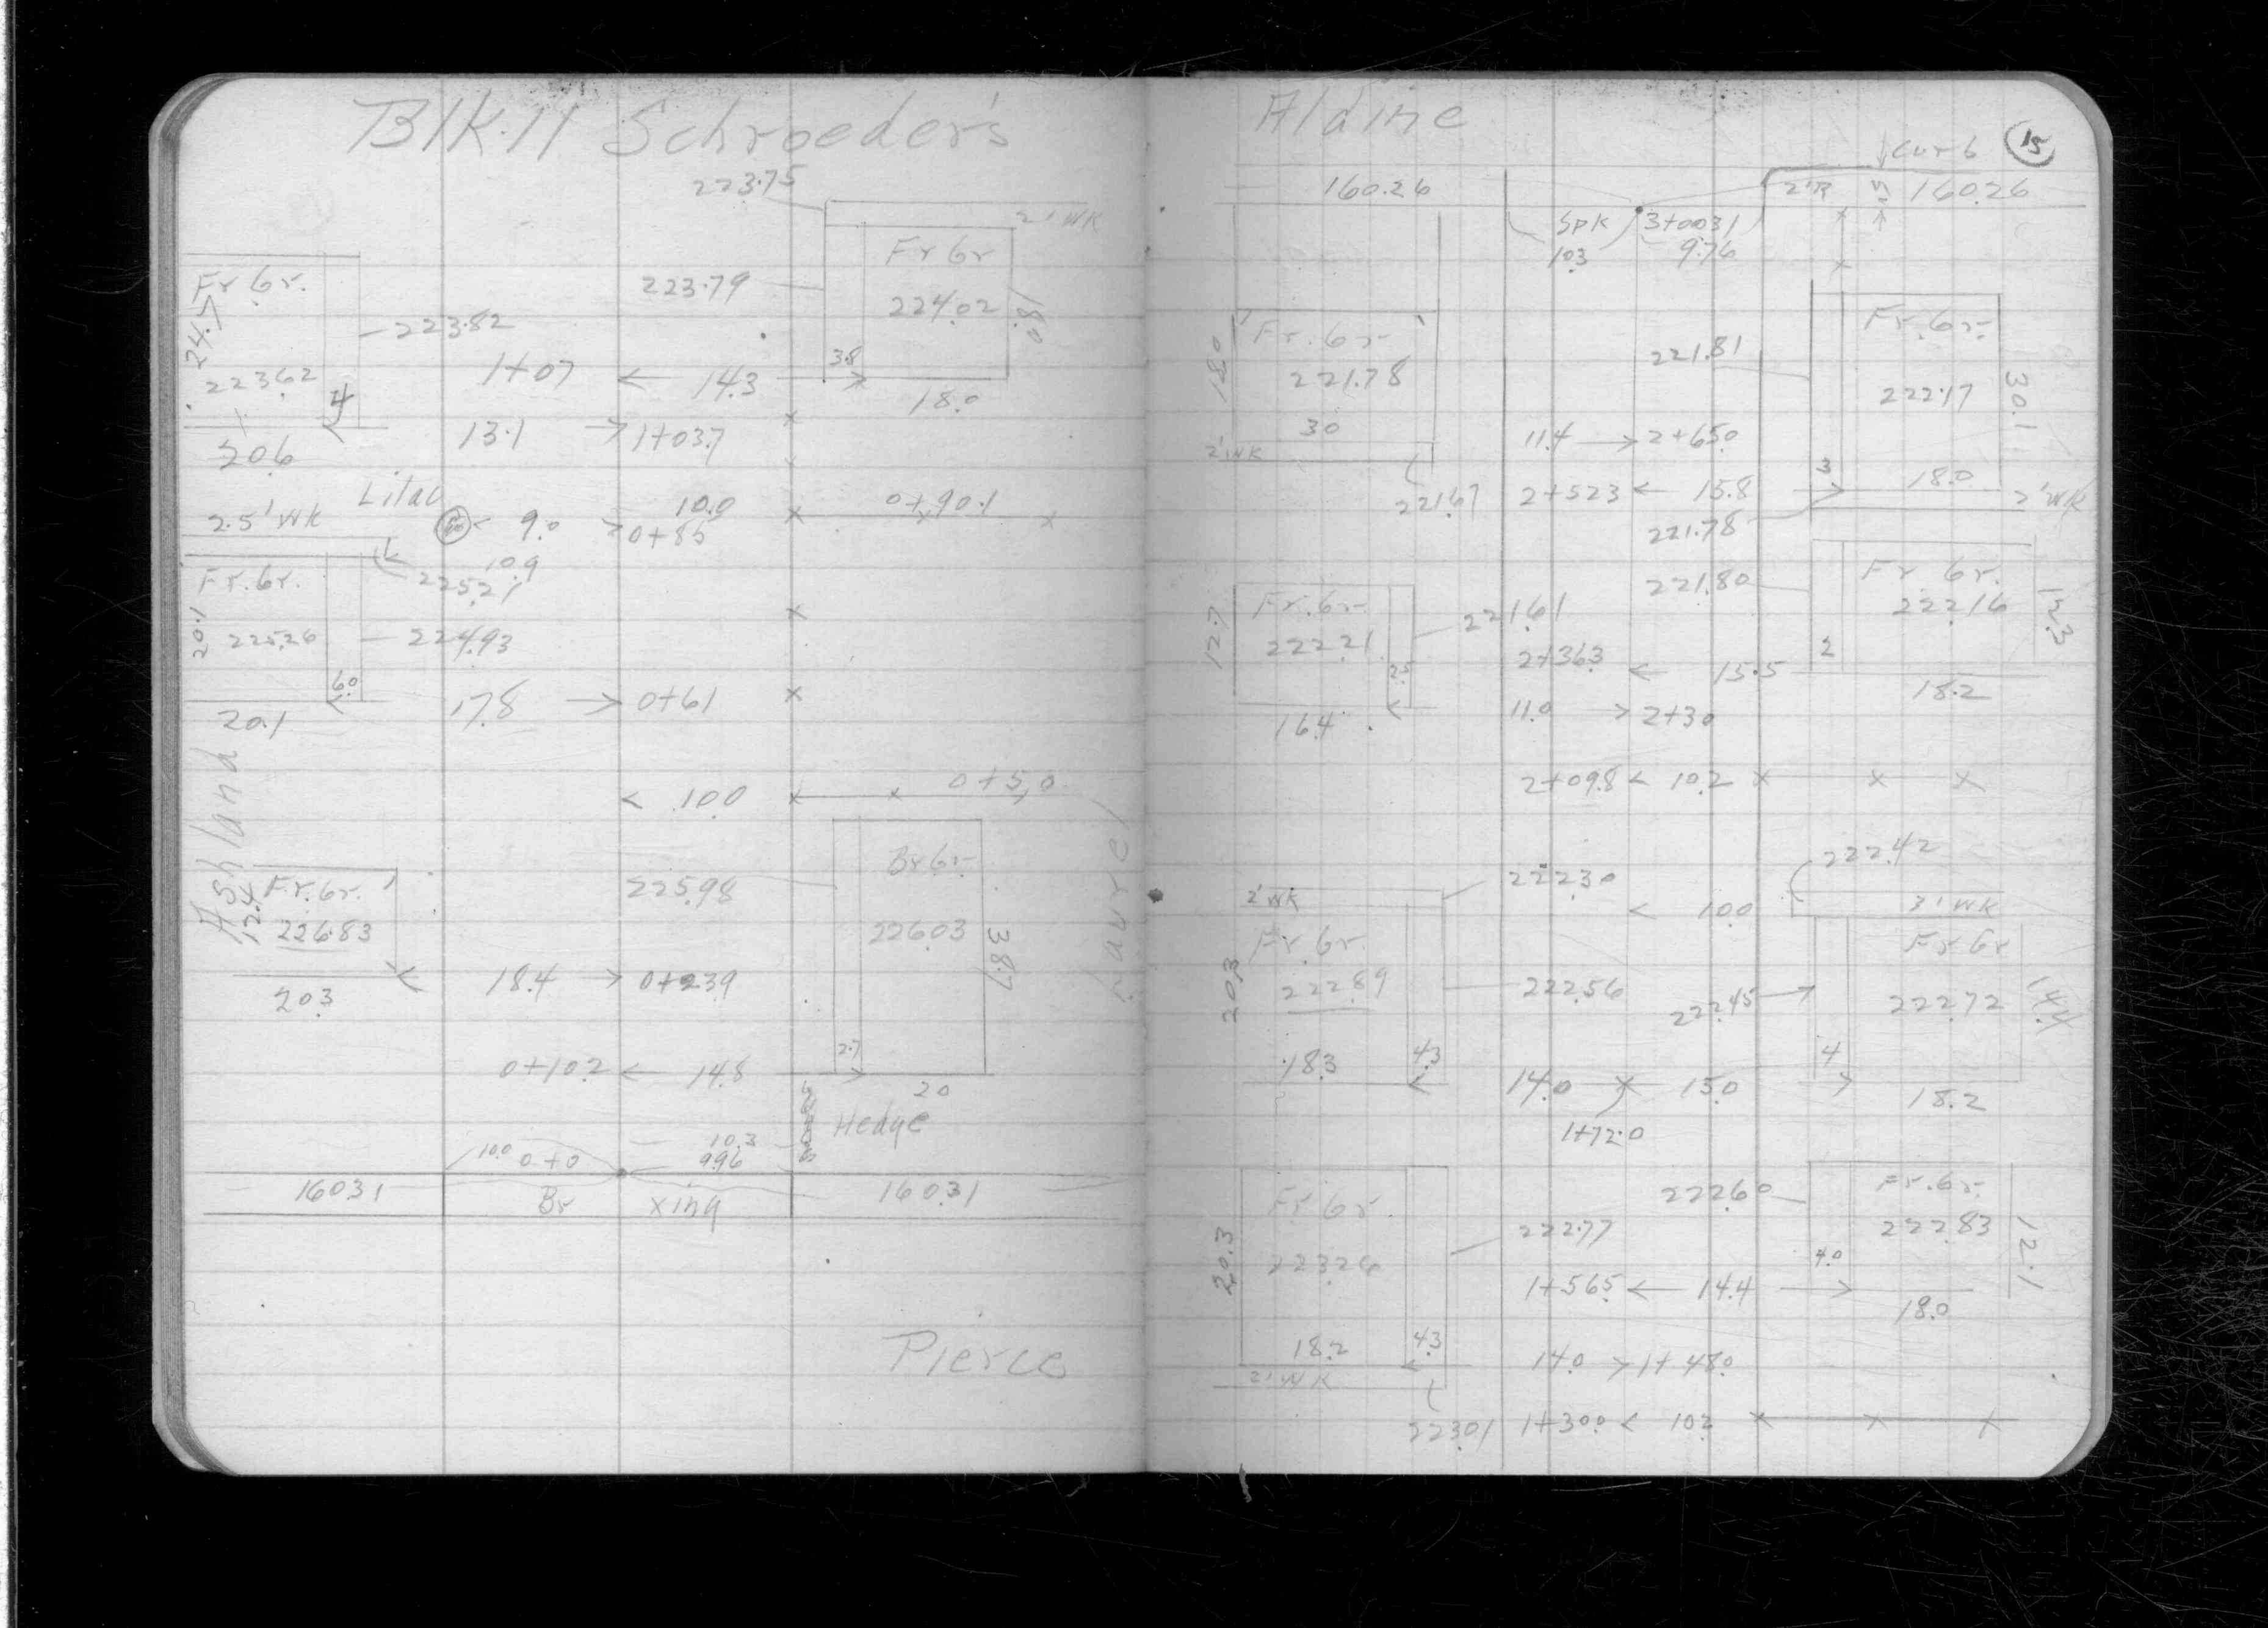 Blk. 11 Schroeder's
223.75
2' WK
Fr Gr
Fr Gr.
223.79
224.02
18.0
24.7
223.82
3.8
223.62
1+07
14.3
4
18.0
13.1
1+03.7
20.6
Lilac
10.0
0+90.1
2.5' WK
9.0
0+85
10.9
Fr. Gr.
225.21
20.1
225.26
224.93
6.0
17.8
0+61
20.1
Ashland
0+5,0
10.0
Laurel
Br Gr
Fr. Gr.
225.98
12.4
226.83
226.03
38.7
18.4
0+23.9
20.3
2.7
0+10.2
14.8
20
Hedge
10.0
0+0
10.3
9.96
160.31
Br
xing
160.31
Pierce
Aldine
15
Curb
160.26
2'R
5'
160.26
Spk
3+00.31
10.3
9.76
Fr. Gr
Fr. Gr
221.81
18.0
221.78
222.17
30.1
30
11.4
2+65.0
2' WK
3
18.0
221.67
2+52.3
15.8
2' WK
221.78
Fr Gr.
Fr. Gr
221.80
222.16
221.61
12.7
222.21
2+36.3
15.5
2
2.5
18.2
16.4
11.0
2+30
2+09.8
10.2
222.42
222.30
2' WK
10.0
3' WK
Fr. Gr.
Fr Gr
20.3
222.89
222.56
222.45
222.72
14.4
18.3
4.3
14.0
15.0
4
18.2
1+72.0
222.60
Fr. Gr.
Fr. Gr.
222.77
222.83
12.1
20.3
223.26
4.0
1+56.5
14.4
18.0
18.2
4.3
14.0
1+48.0
2' WK
223.01
1+30.0
10.2